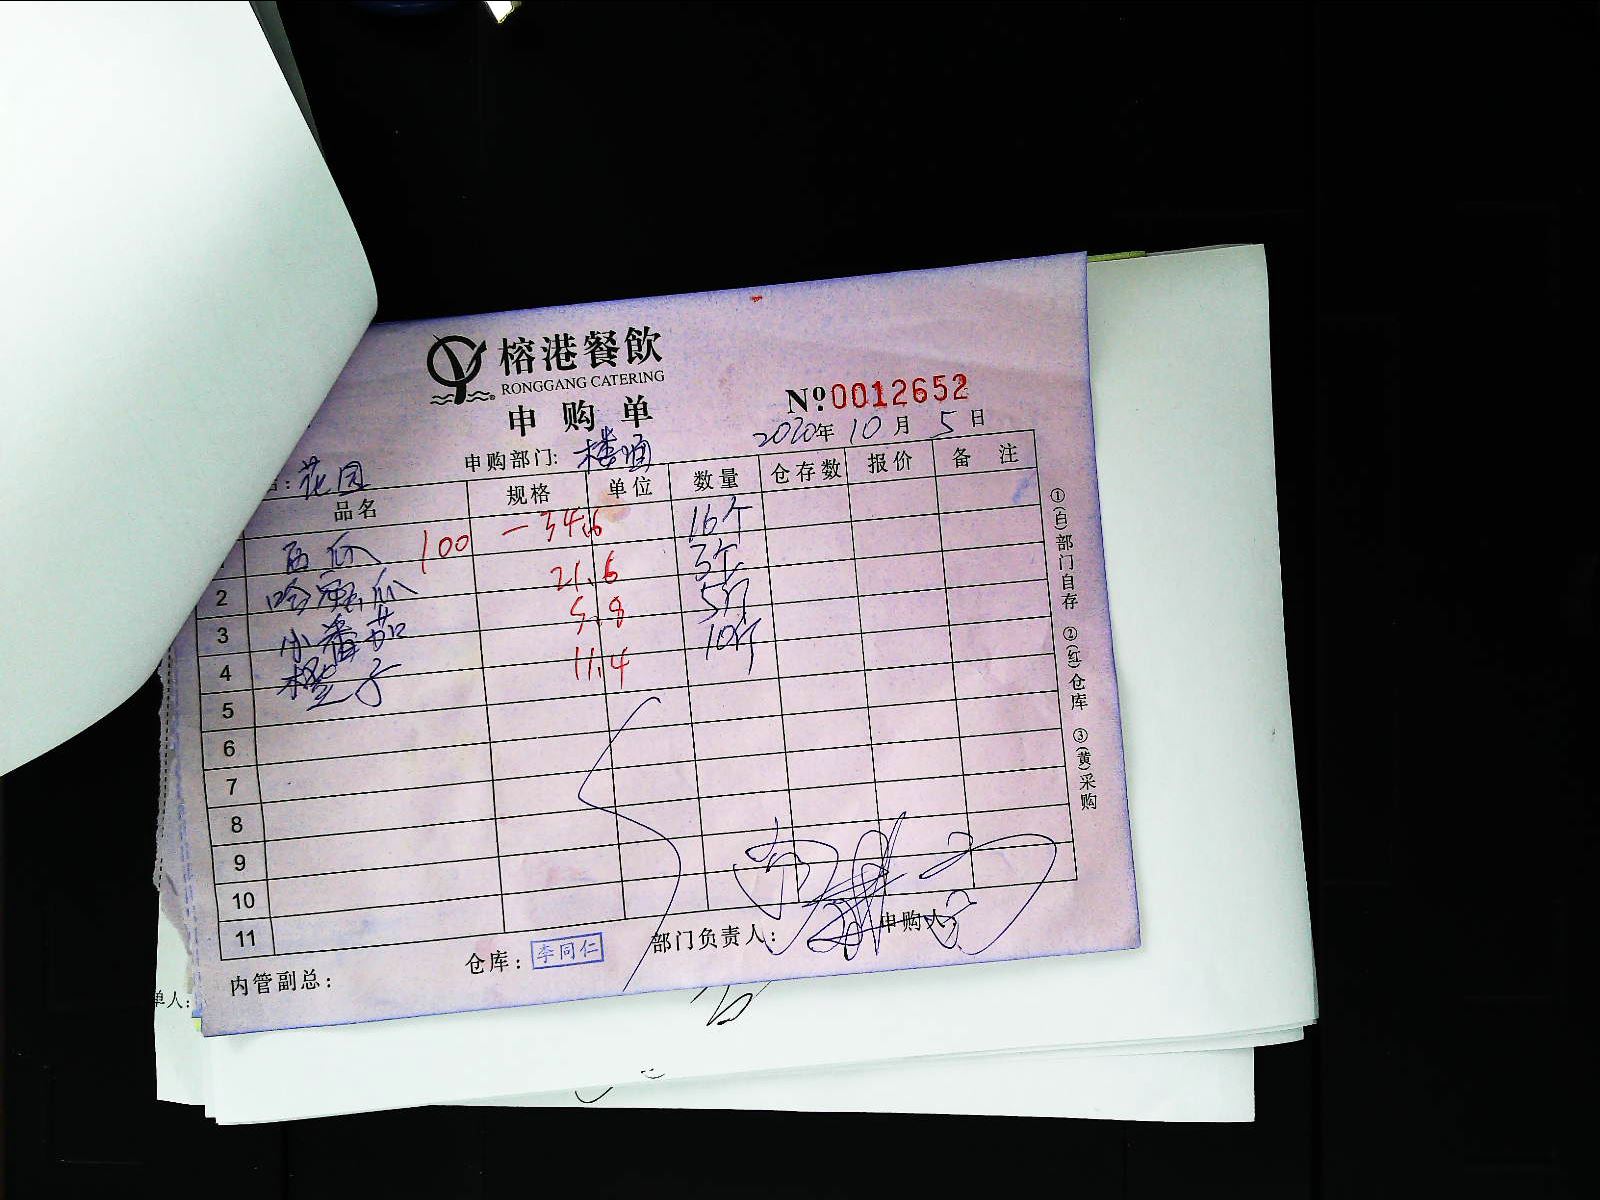 榕港餐飲
RONGGANG CATERING
申购单
№ 0012652
2020年 10月 5日
申购部门: 楼面
: 花园
品名 规格 单位 数量 仓存数 报价 备注
西瓜 100 - 34.6 16个
2 哈密瓜 21.6 3个
3 小番茄 5.8 5斤
4 橙子 11.4 10斤
5
6
7
8
9
10
11
内管副总:
仓库: 李同仁
部门负责人:
申购人:
①(白)部门自存 ②(红)仓库 ③(黄)采购
单人: